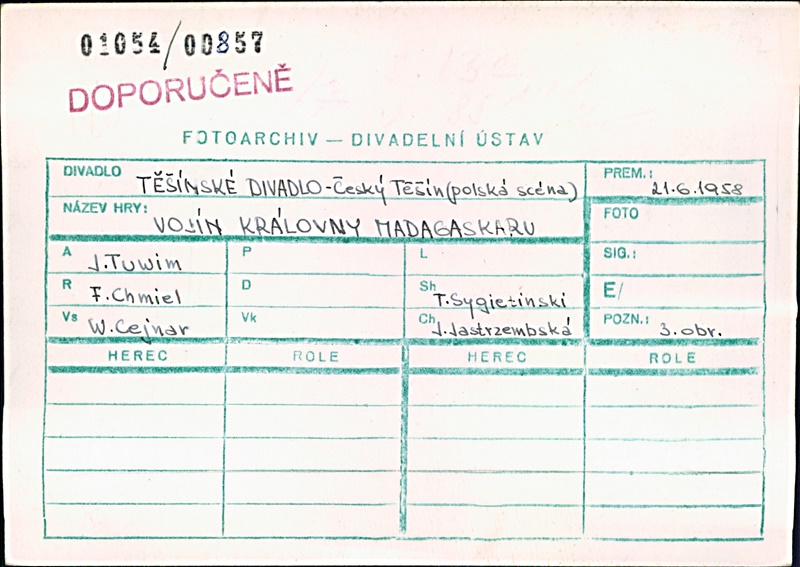 01054/00857
DOPORUČENĚ
FOTOARCHIV — DIVADELNÍ ÚSTAV
DIVADLO TĚŠÍNSKÉ DIVADLO-Český Těšín (polská scéna)
PREM.: 21.6.1958
NÁZEV HRY: VOJÍN KRÁLOVNY MADAGASKARU
FOTO
A J.Tuwim
P
L
SIG.:
R F.Chmiel
D
Sh T.Sygietinski
E/
Vs W.Cejnar
Vk
Ch J.Jastrzembská
POZN.: 3.obr.
HEREC ROLE HEREC ROLE